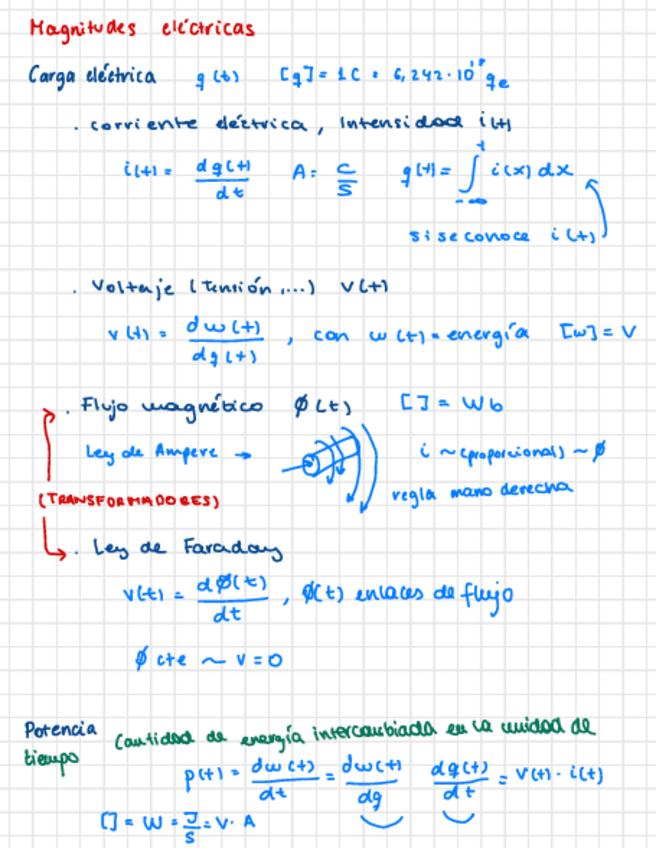 Magnitudes eléctricas
Carga eléctrica q(t) [q] = 1C = 6,242·10¹⁸ qe
. corriente eléctrica, Intensidad i(t)
i(t) = dq(t)/dt A = C/s q(t) = ∫_{-∞}^{t} i(x) dx
si se conoce i(t)
. Voltaje (tensión,...) v(t)
v(t) = dw(t)/dq(t) , con w(t) = energía [w] = V
. Flujo magnético ϕ(t) [] = Wb
Ley de Ampere → i ~ (proporcional) ~ ϕ
regla mano derecha
(TRANSFORMADORES)
. Ley de Faraday
v(t) = dϕ(t)/dt , ϕ(t) enlaces de flujo
ϕ cte ~ v = 0
Potencia Cantidad de energía intercambiada en la unidad de
tiempo
p(t) = dw(t)/dt = dw(t)/dq dq(t)/dt = v(t) · i(t)
[] = W = J/s = V · A